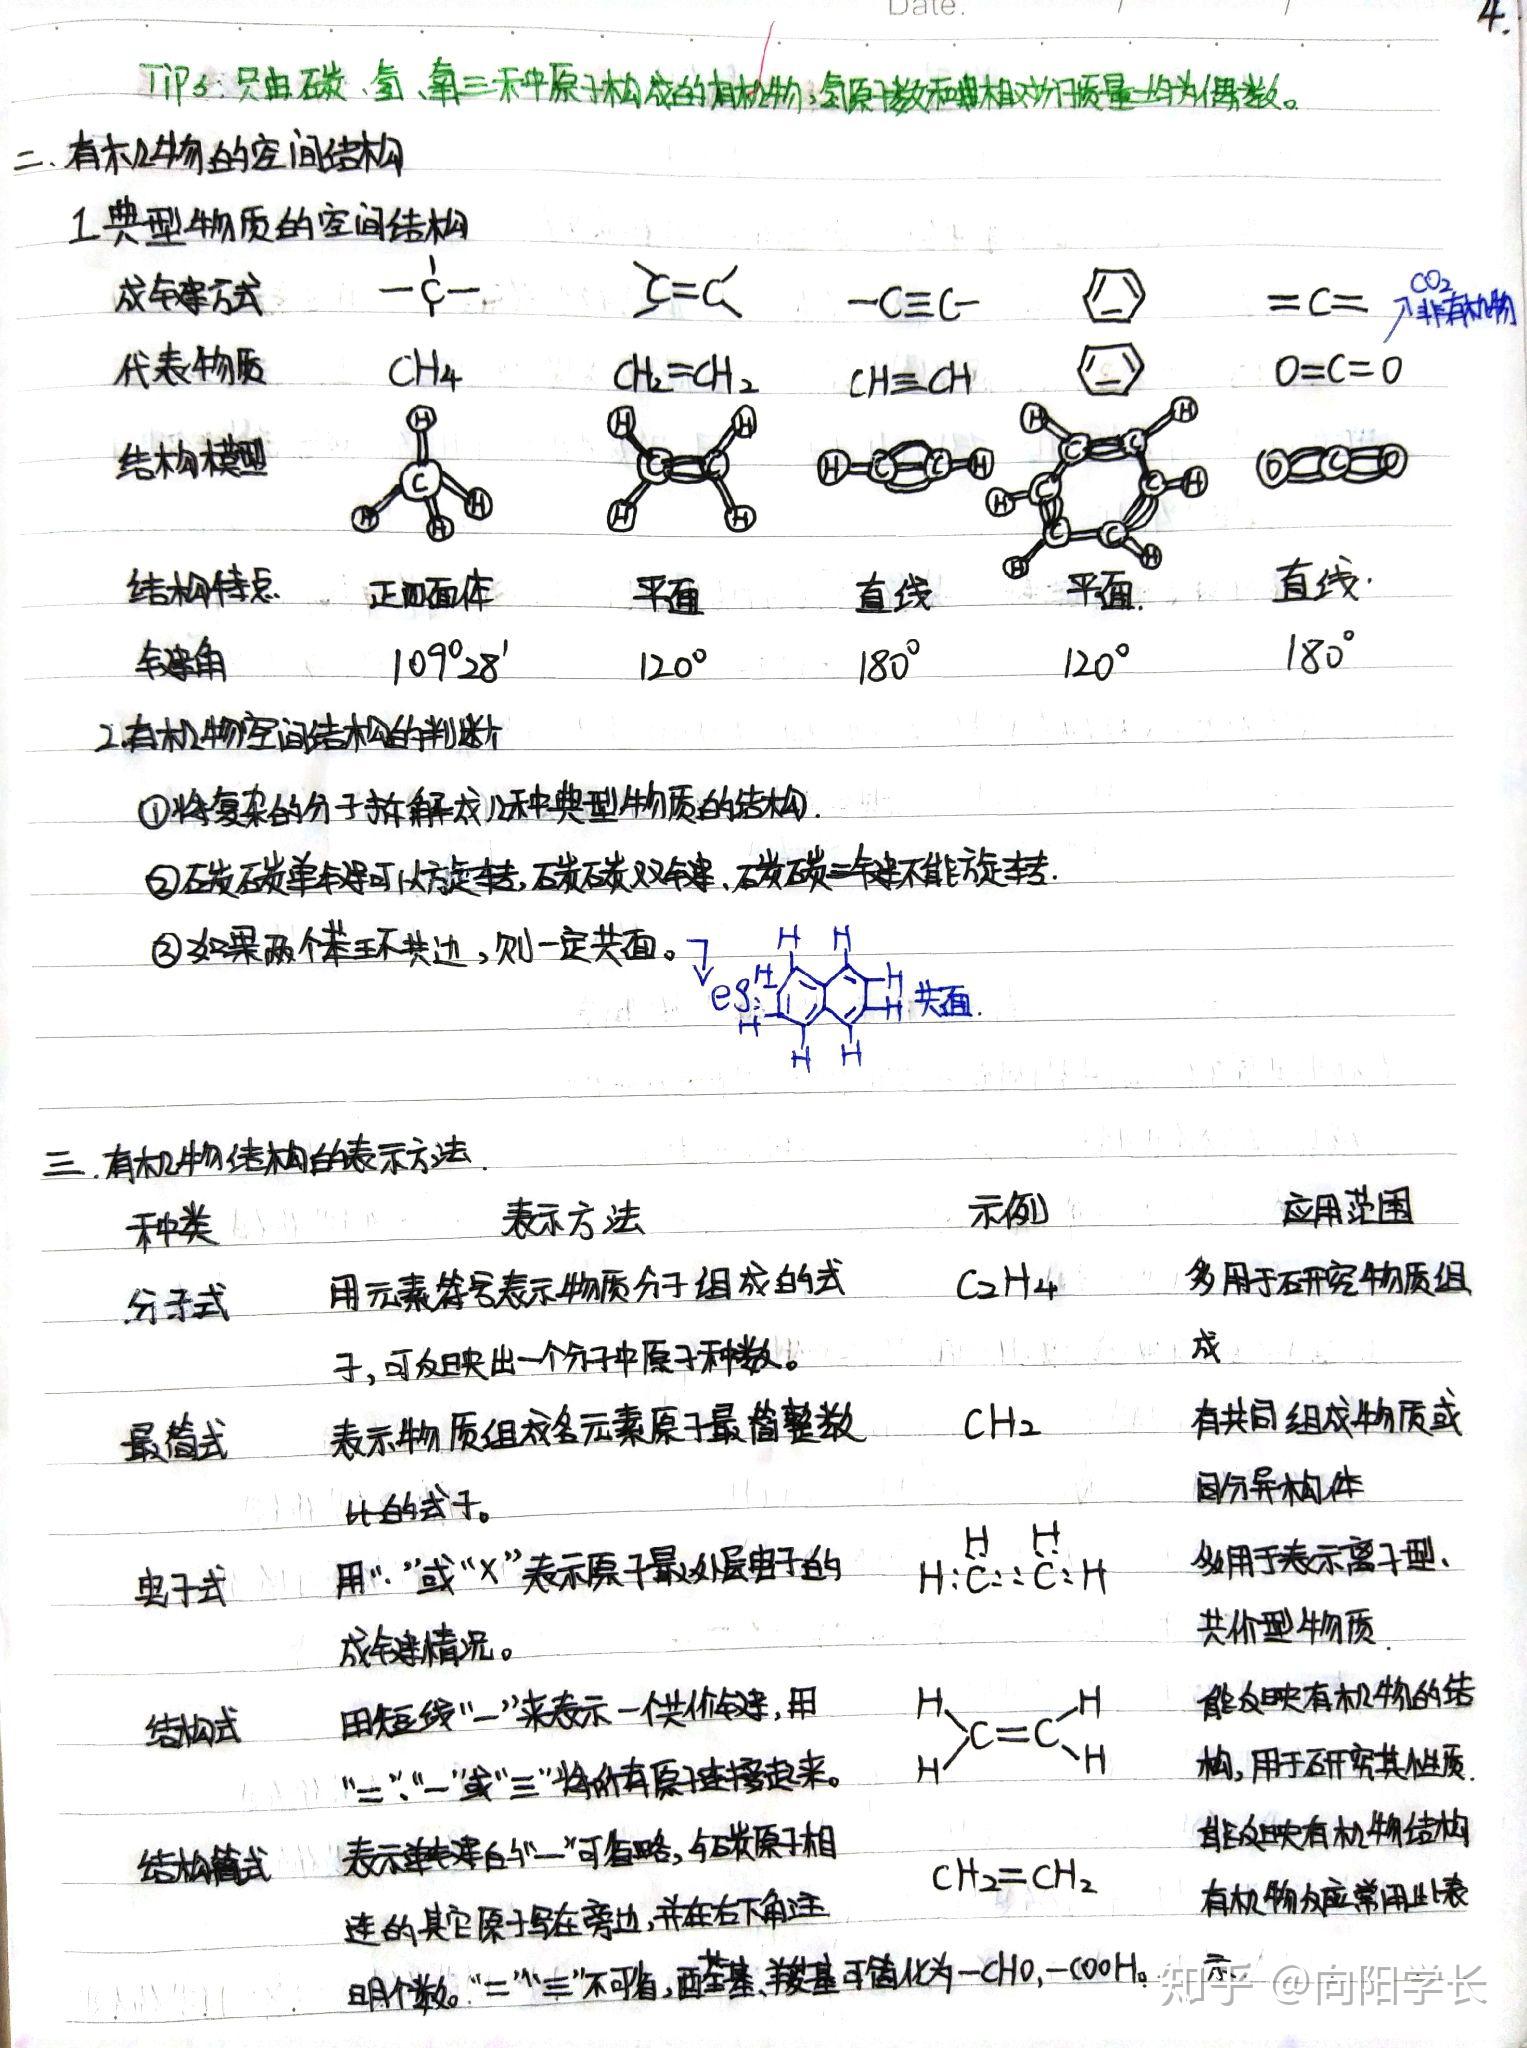 Date. / /
4.
Tips: 只由碳、氢、氧三种原子构成的有机物,氢原子数和相对分子质量均为偶数。
二.有机物的空间结构
1.典型物质的空间结构
成键方式 —C— C=C —C≡C— =C= CO2 非有机物
代表物质 CH4 CH2=CH2 CH≡CH O=C=O
结构模型 H C H H H H H C C H H H C C H H H C C H C C H C C H H O C O
结构特点 正四面体 平面 直线 平面. 直线.
键角 109°28′ 120° 180° 120° 180°
2.有机物空间结构的判断
①将复杂的分子拆解成几种典型物质的结构.
②碳碳单键可以旋转,碳碳双键、碳碳三键不能旋转.
③如果两个苯环共边,则一定共面。
eg: H H H H H H H H 共面.
三.有机物结构的表示方法.
种类 表示方法 示例 应用范围
分子式 用元素符号表示物质分子组成的式 C2H4 多用于研究物质组
子,可反映出一个分子中原子种数。 成
最简式 表示物质组成各元素原子最简整数 CH2 有共同组成物质或
比的式子。 同分异构体
电子式 用“·”或“×”表示原子最外层电子的 H H H:C::C:H 多用于表示离子型、
成键情况。 共价型物质.
结构式 用短线“—”来表示一个共价键,用 H H C=C H H 能反映有机物的结
“=”“—”或“≡”将所有原子连接起来。 构,用于研究其性质.
结构简式 表示单键的“—”可省略,与碳原子相 CH2=CH2 能反映有机物结构
连的其它原子写在旁边,并在右下角注 有机物反应常用此表
明个数。“=”“≡”不可省,醛基、羧基可简化为—CHO,—COOH。 示.
知乎 @向阳学长